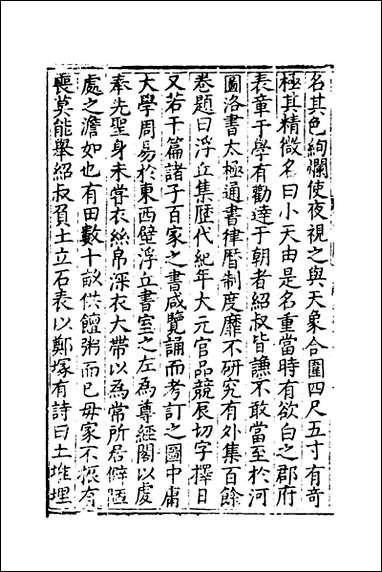 名其色絢爛使夜視之與天象合圍四尺五寸有奇
極其精微名曰小天由是名重當時有欲白之郡府
表章于學有勸達于朝者紹叔皆謙不敢當至於河
圖洛書太極通書律曆制度靡不研究有外集百餘
卷題曰浮丘集歷代紀年大元官品競辰切字擇日
又若干篇諸子百家之書咸覽誦而考訂之圖中庸
大學周易於東西壁浮丘書室之左為尊經閣以度
奉先聖身未嘗衣絲帛深衣大帶以為常所居僻陋
處之澹如也有田數十畝供饘粥而已毋家不悵存
喪莫能舉紹叔負土立石表以鄭塚有詩曰土堆埋